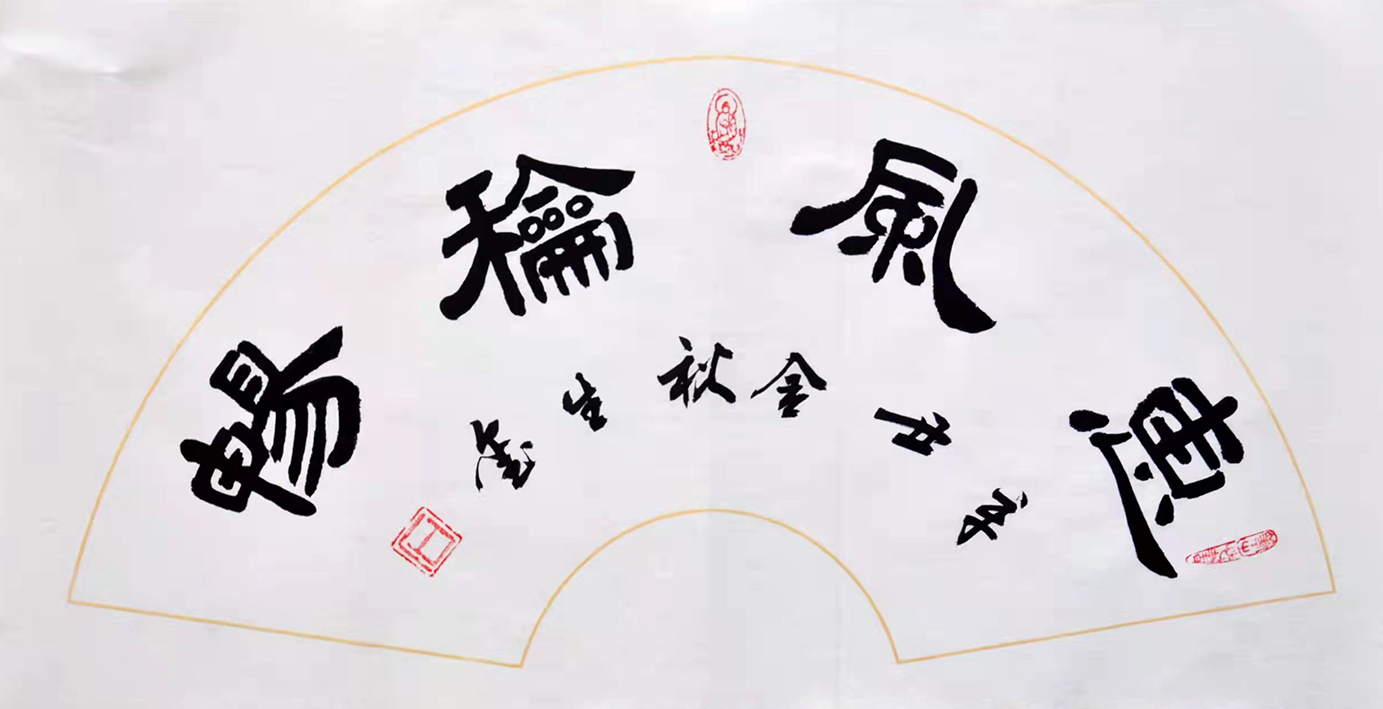 惠風龢暢
辛丑金秋生